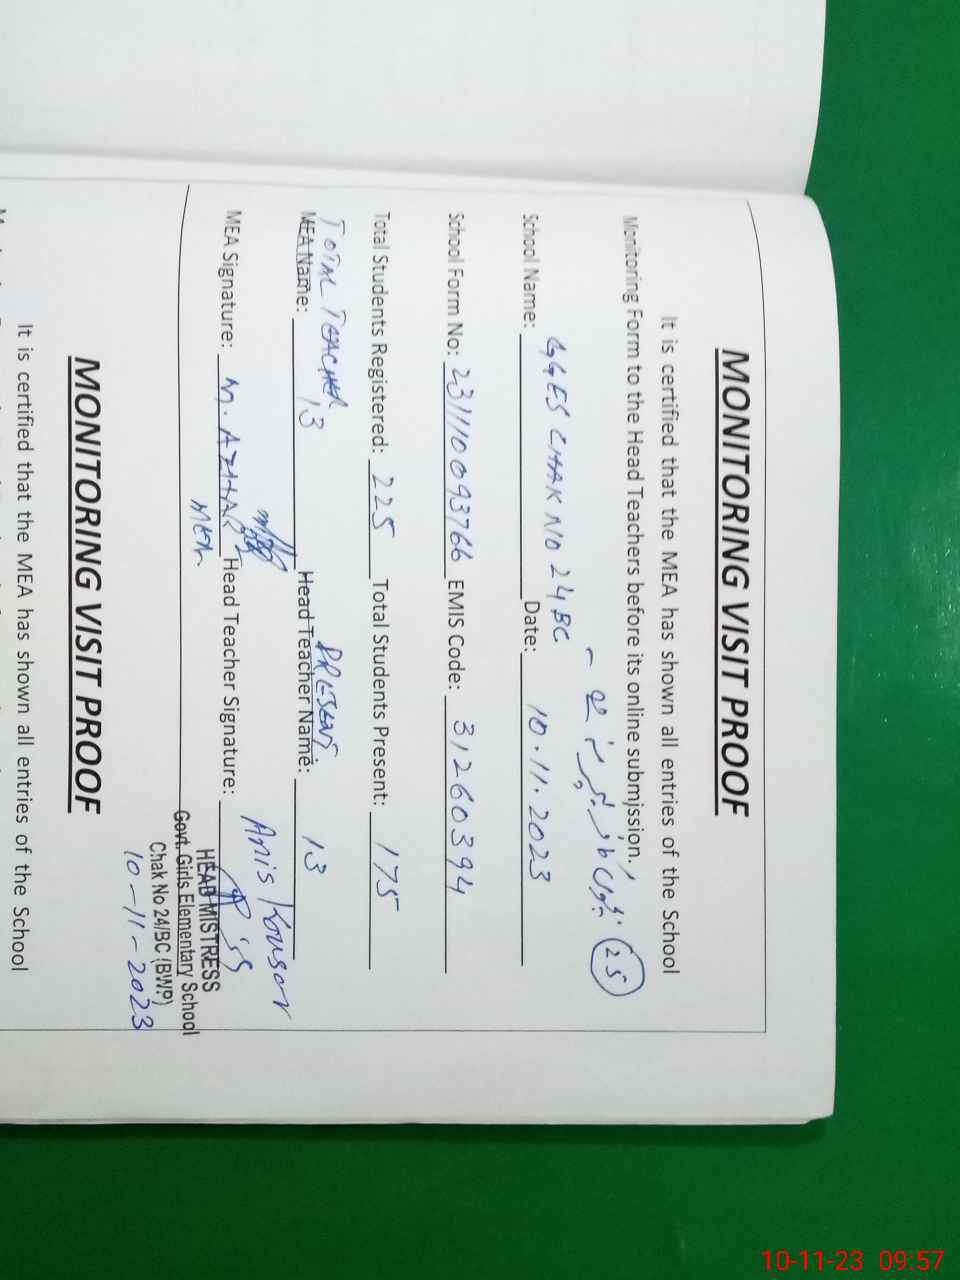 MONITORING VISIT PROOF
It is certified that the MEA has shown all entries of the School
Monitoring Form to the Head Teachers before its online submission.
25
School Name: GGES CHAK NO 24BC Date: 10.11.2023
School Form No: 231110093766 EMIS Code: 31260394
Total Students Registered: 225 Total Students Present: 175
TOTAL TEACHER PRESENT
MEA Name: 13 Head Teacher Name: 13
Anis Kousar
MEA Signature: M. AZHAR Head Teacher Signature:
MEA
HEAD MISTRESS
Govt. Girls Elementary School
Chak No 24/BC (BWP)
10-11-2023
MONITORING VISIT PROOF
It is certified that the MEA has shown all entries of the School
10-11-23 09:57